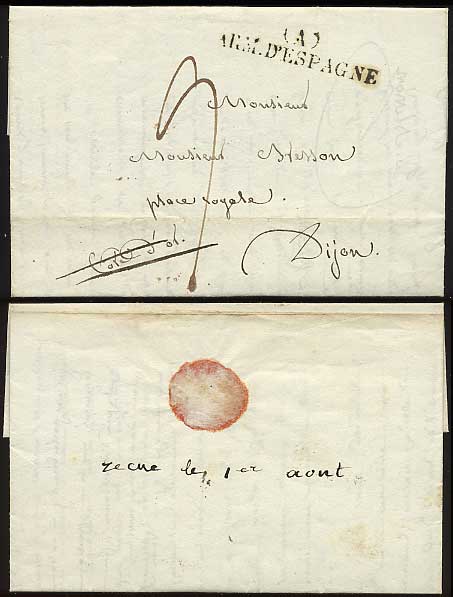 (A)
ARM. D'ESPAGNE
Monsieur
Monsieur Hesson
place royale.
Côte d'or.
Dijon.
recue le 1er aout